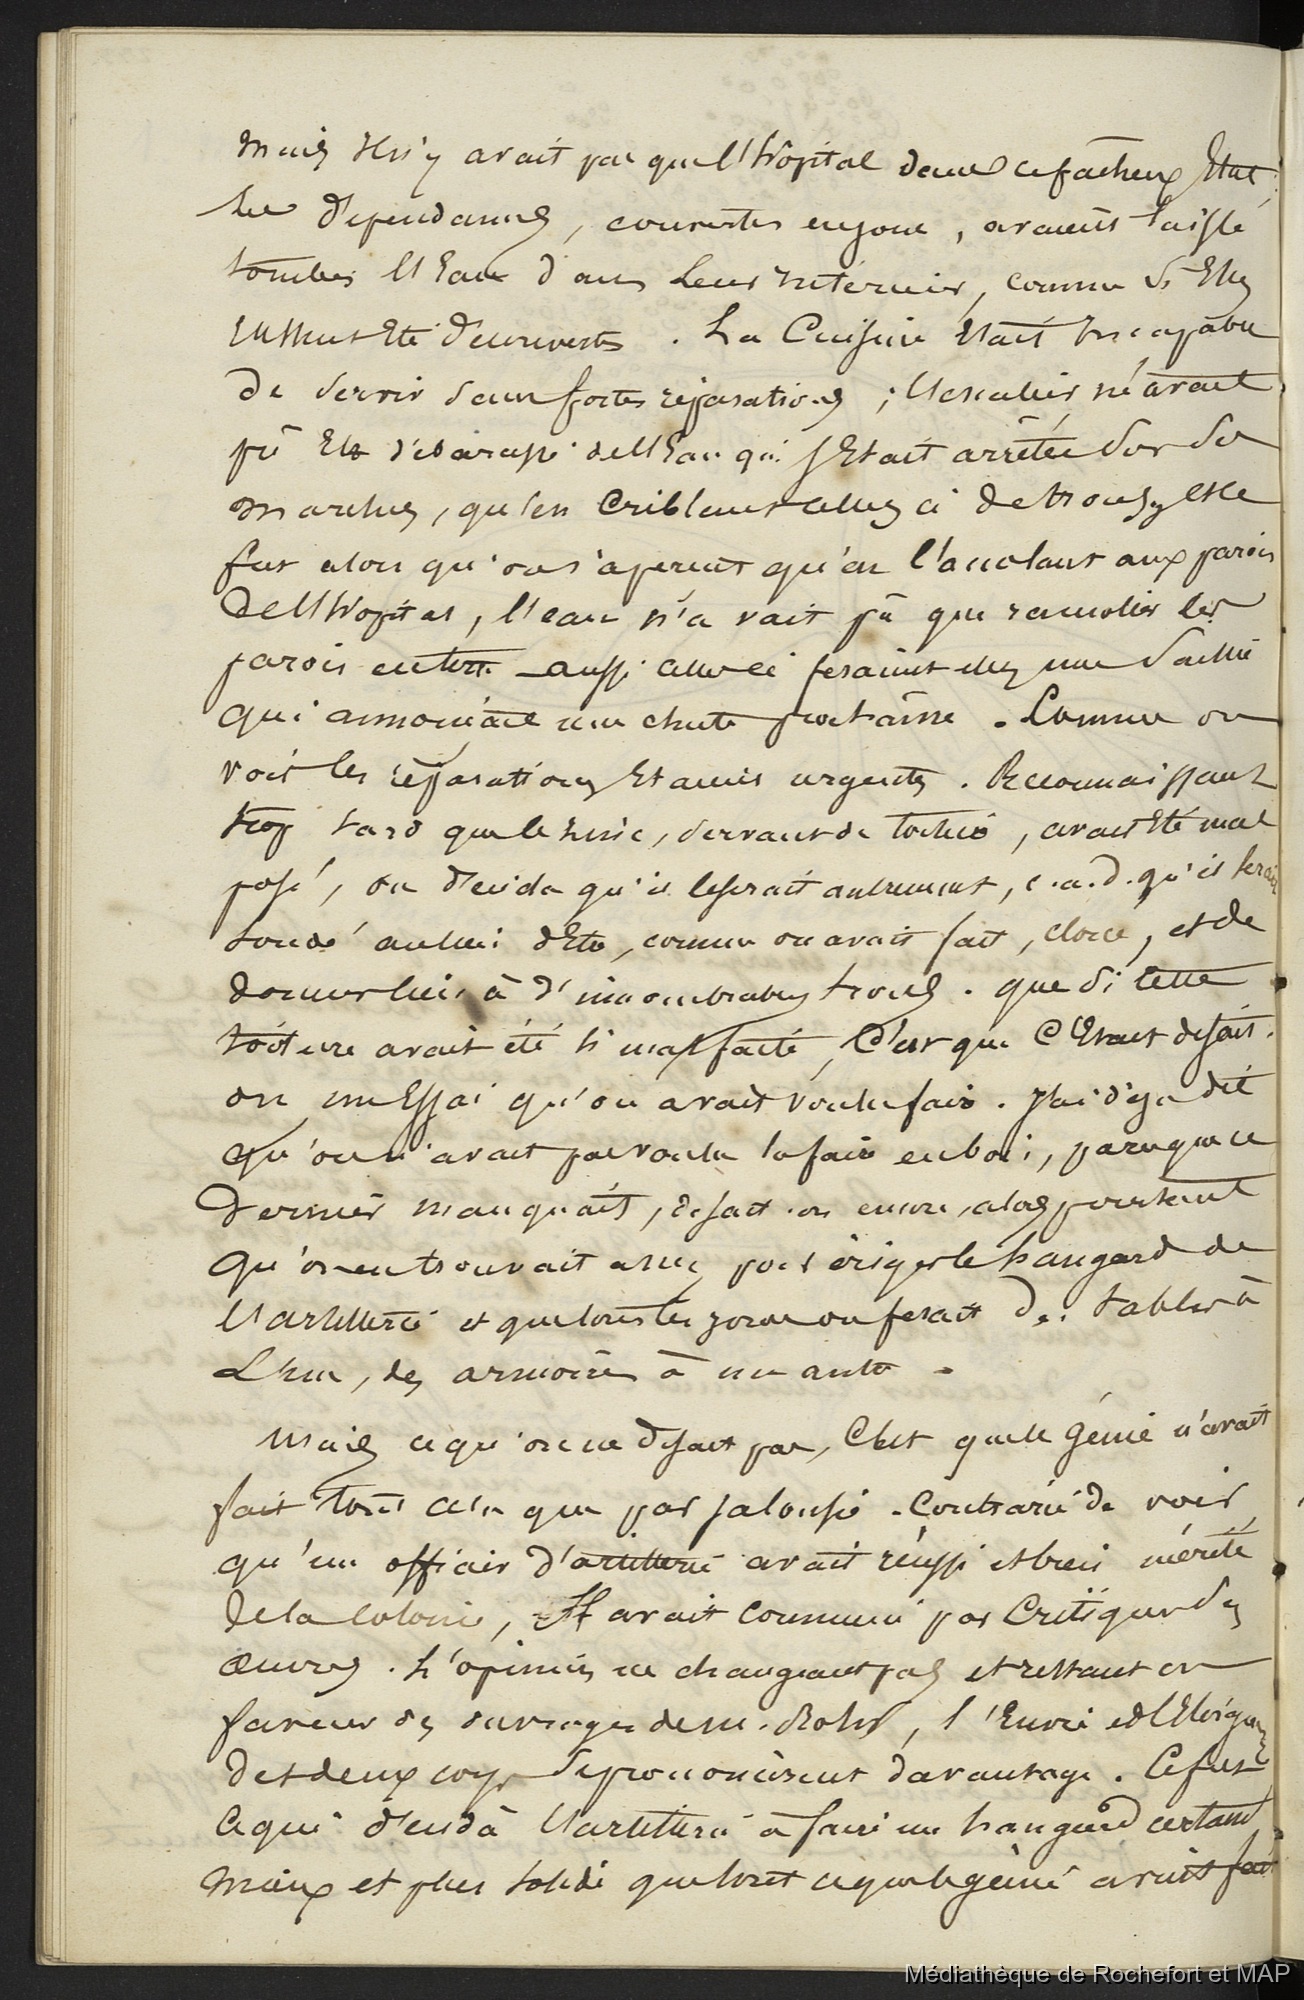 Mais il n'y avait pas que l'hôpital dans ce fâcheux Etat
Les dépendances, couvertes en jonc, avaient laissé
tomber l'Eau dans leur intérieur, comme si Elles
Eussent Eté découvertes. La Cuisine Etait Incapable
de servir sans fortes réparations ; l'escalier n'avait
pû Etre débarassé de l'Eau qui s'Etait arrêtée sur ses
marches, qu'en criblant celles ci de trous, et ce
fut alors qu'on s'aperçut qu'en l'accolant aux parois
de l'hopital, l'eau n'avait pû que ramolir les
parois en terre aussi celles ci fesaient elles une saillie
qui annonçait une chute prochaine. Comme on
voit les réparations Etaient urgentes. Reconnaissant
trop tard que le zinc, servant de toiture, avait Eté mal
posé, on décida qu'il le serait autrement, c.a.d. qu'il serait
soudé au lieu d'Etre, comme on avait fait, cloué, et de
donner lieu à d'innombrables trous. que si cette
toiture avait été si mal faite, C'est que C'Etait disait-
on un Essai qu'on avait voulu faire. J'ai déja dit
qu'on n'avait pas voulu la faire en bois, parceque ce
dernier manquait, disait-on encore, alors pourtant
qu'on en trouvait assez pour ériger le hangard de
l'artillerie et que tous les jours on fesait des tables à
L'un, des armoires à un autre.
Mais ce qu'on ne disait pas, C'est que le génie n'avait
fait tout cela que par jalousie. Contrarié de voir
qu'un officier d'artillerie avait réussi et bien mérité
de la colonie, Il avait commencé par Critiquer ses
œuvres. L'opinion ne changeant pas et restant en
faveur des ouvrages de M.
des deux corps se prononcèrent davantage. Ce fut
ce qui décida l'artillerie à faire un hangard
mieux et plus solide que tout ce que le génie avait fait
Médiathèque de Rochefort et MAP